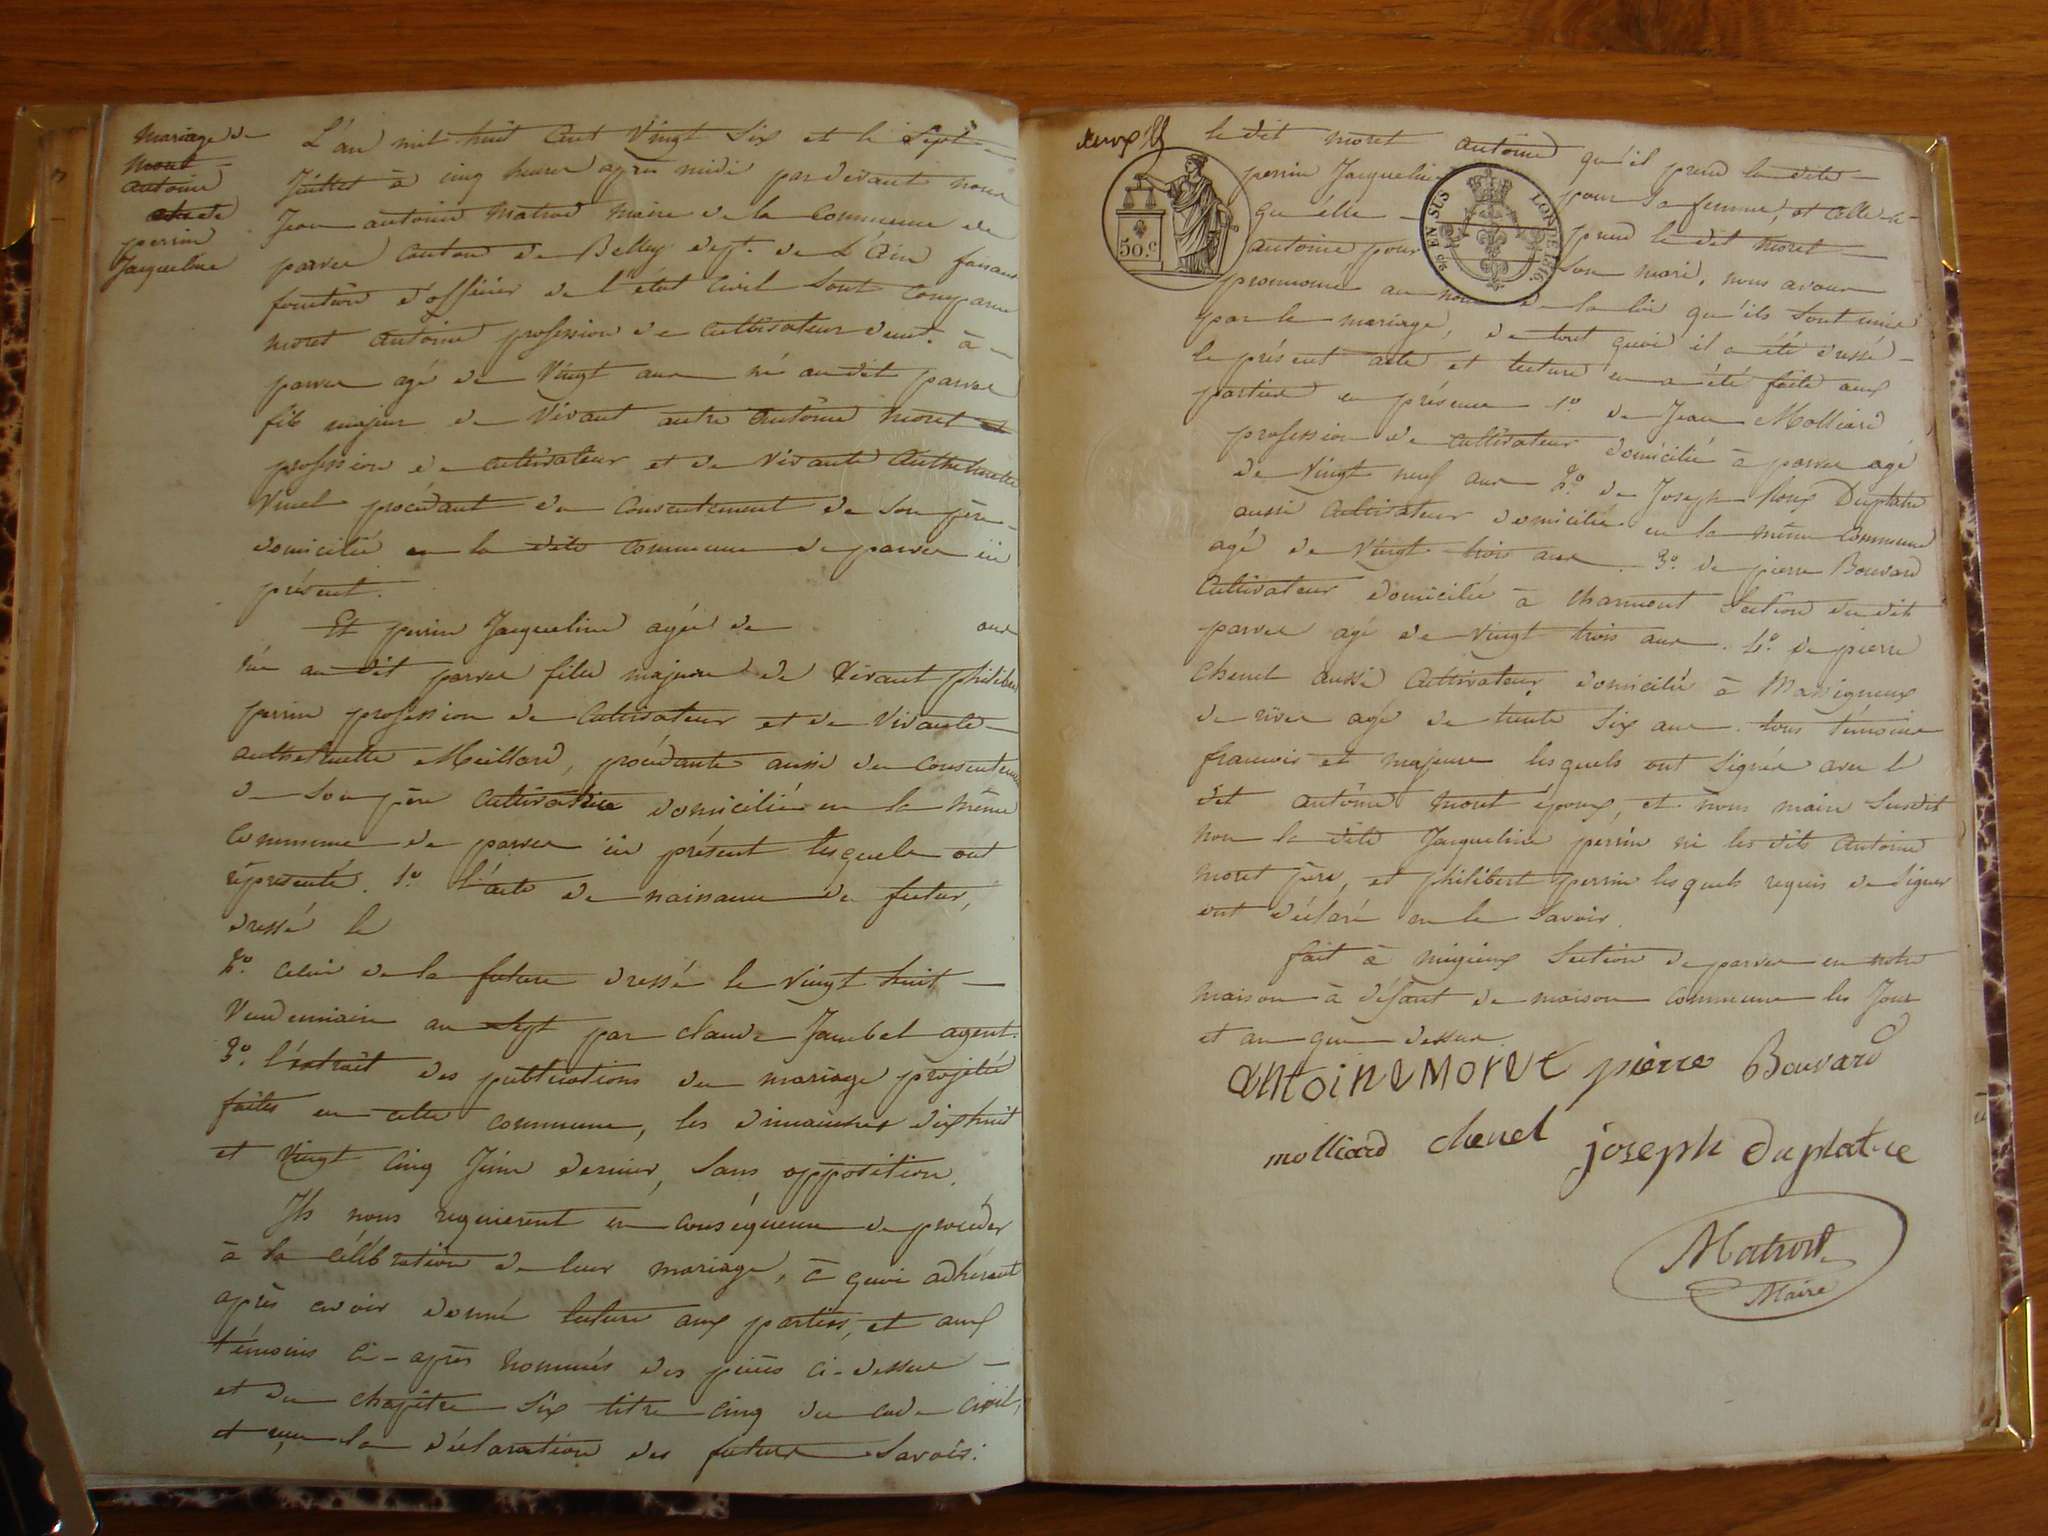 Mariage de
Moret
Antoine
et de
perrin
Jacqueline
L'an mil huit cent Vingt Six et le Sept
Juillet à cinq heures après midi par devant nous
Jean antoine Matrod maire de la Commune de
parves Canton de Belley dept. de L'Ain faisant
fonction d'officier de l'état Civil sont comparus
moret Antoine profession de cultivateur demt. à
parves agé de Vingt ans né au dit parves
fils majeur de Vivant autre Antoine Moret et
profession de cultivateur et de Vivante Anthelmette
Vinel procédant du Consentement de Son père
domicilié en la dite commune de parves ici
présent.
Et perrin Jacqueline agée de ans
née au dit parves fille majeure de Vivant philibert
perrin profession de Cultivateur et de Vivante
anthelmette Meillard, procédante aussi du consentement
de Son père Cultivatrice domiciliée en la même
Commune de parves ici présent lesquels ont
représenté. 1o. l'acte de naissance du futur,
dressé le
2o. celui de la future dressé le vingt huit
Vendemiaire an Sept par claude Jambel agent.
3o. l'extrait des publications du mariage projetté
faites en cette commune, les dimanches dix huit
et Vingt cinq Juin dernier, Sans opposition.
Ils nous requierent en conséquence de procéder
à la célébration de leur mariage, à quoi adhérant
après avoir donné lecture aux parties, et aux
témoins ci-après nommés des pièces ci-dessus
et du chapitre Six titre cinq du code civil,
et reçu la déclaration des futurs Savoir:
deux
le dit moret Antoine qu'il prend la dite
perrin Jacqueline pour Sa femme, et celle-ci
qu'elle prend le dit Moret
Antoine pour Son mari, nous avons
prononcé au nom de la loi qu'ils sont unis
par le mariage, de tout quoi il a été dressé
le présent acte et lecture en a été faite aux
parties en présence 1o. de Jean Molliard
profession de cultivateur domicilié à parves agé
de Vingt neuf ans 2o. de Joseph Roux Duplatre
aussi Cultivateur domicilié en la même Commune
agé de Vingt trois ans. 3o. de pierre Bouvard
Cultivateur domicilié à Charmont Section du dit
parves agé de vingt trois ans. 4o. de pierre
Chenel aussi Cultivateur domicilié à Massigneux
de rives agé de trente Six ans. tous témoins
francois et majeurs lesquels ont Signés avec l
dit antoine moret époux, et nous maire Susdit
non la dite Jacqueline perrin ni les dits Antoine
moret père, et philibert perrin lesquels requis de Signer
ont déclaré ne le Savoir.
fait à migieux Section de parves en notre
maison à défaut de maison commune les Jour
et an que dessus.
50.c
EN SUS
LOI DE 1816
antoine moret pierre Bouvard
molliard chenel joseph duplatre
Matrod
Maire